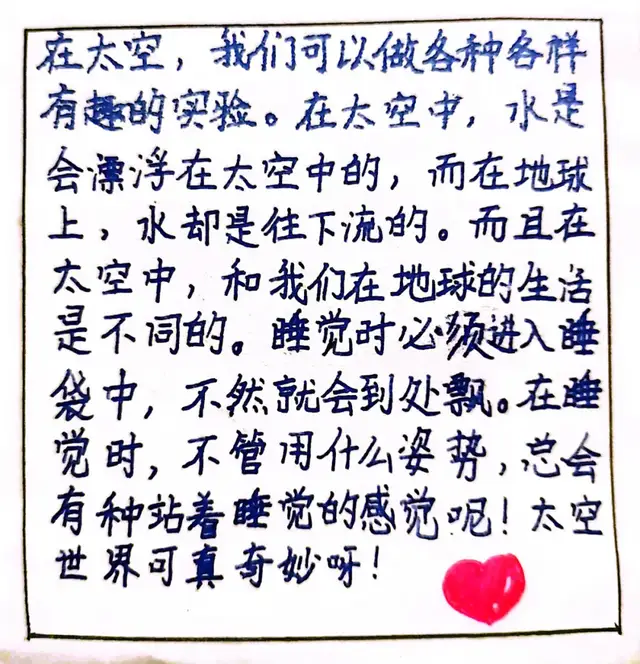 在太空，我们可以做各种各样
有趣的实验。在太空中，水是
会漂浮在太空中的，而在地球
上，水却是往下流的。而且在
太空中，和我们在地球的生活
是不同的。睡觉时必须进入睡
袋中，不然就会到处飘。在睡
觉时，不管用什么姿势，总会
有种站着睡觉的感觉呢！太空
世界可真奇妙呀！